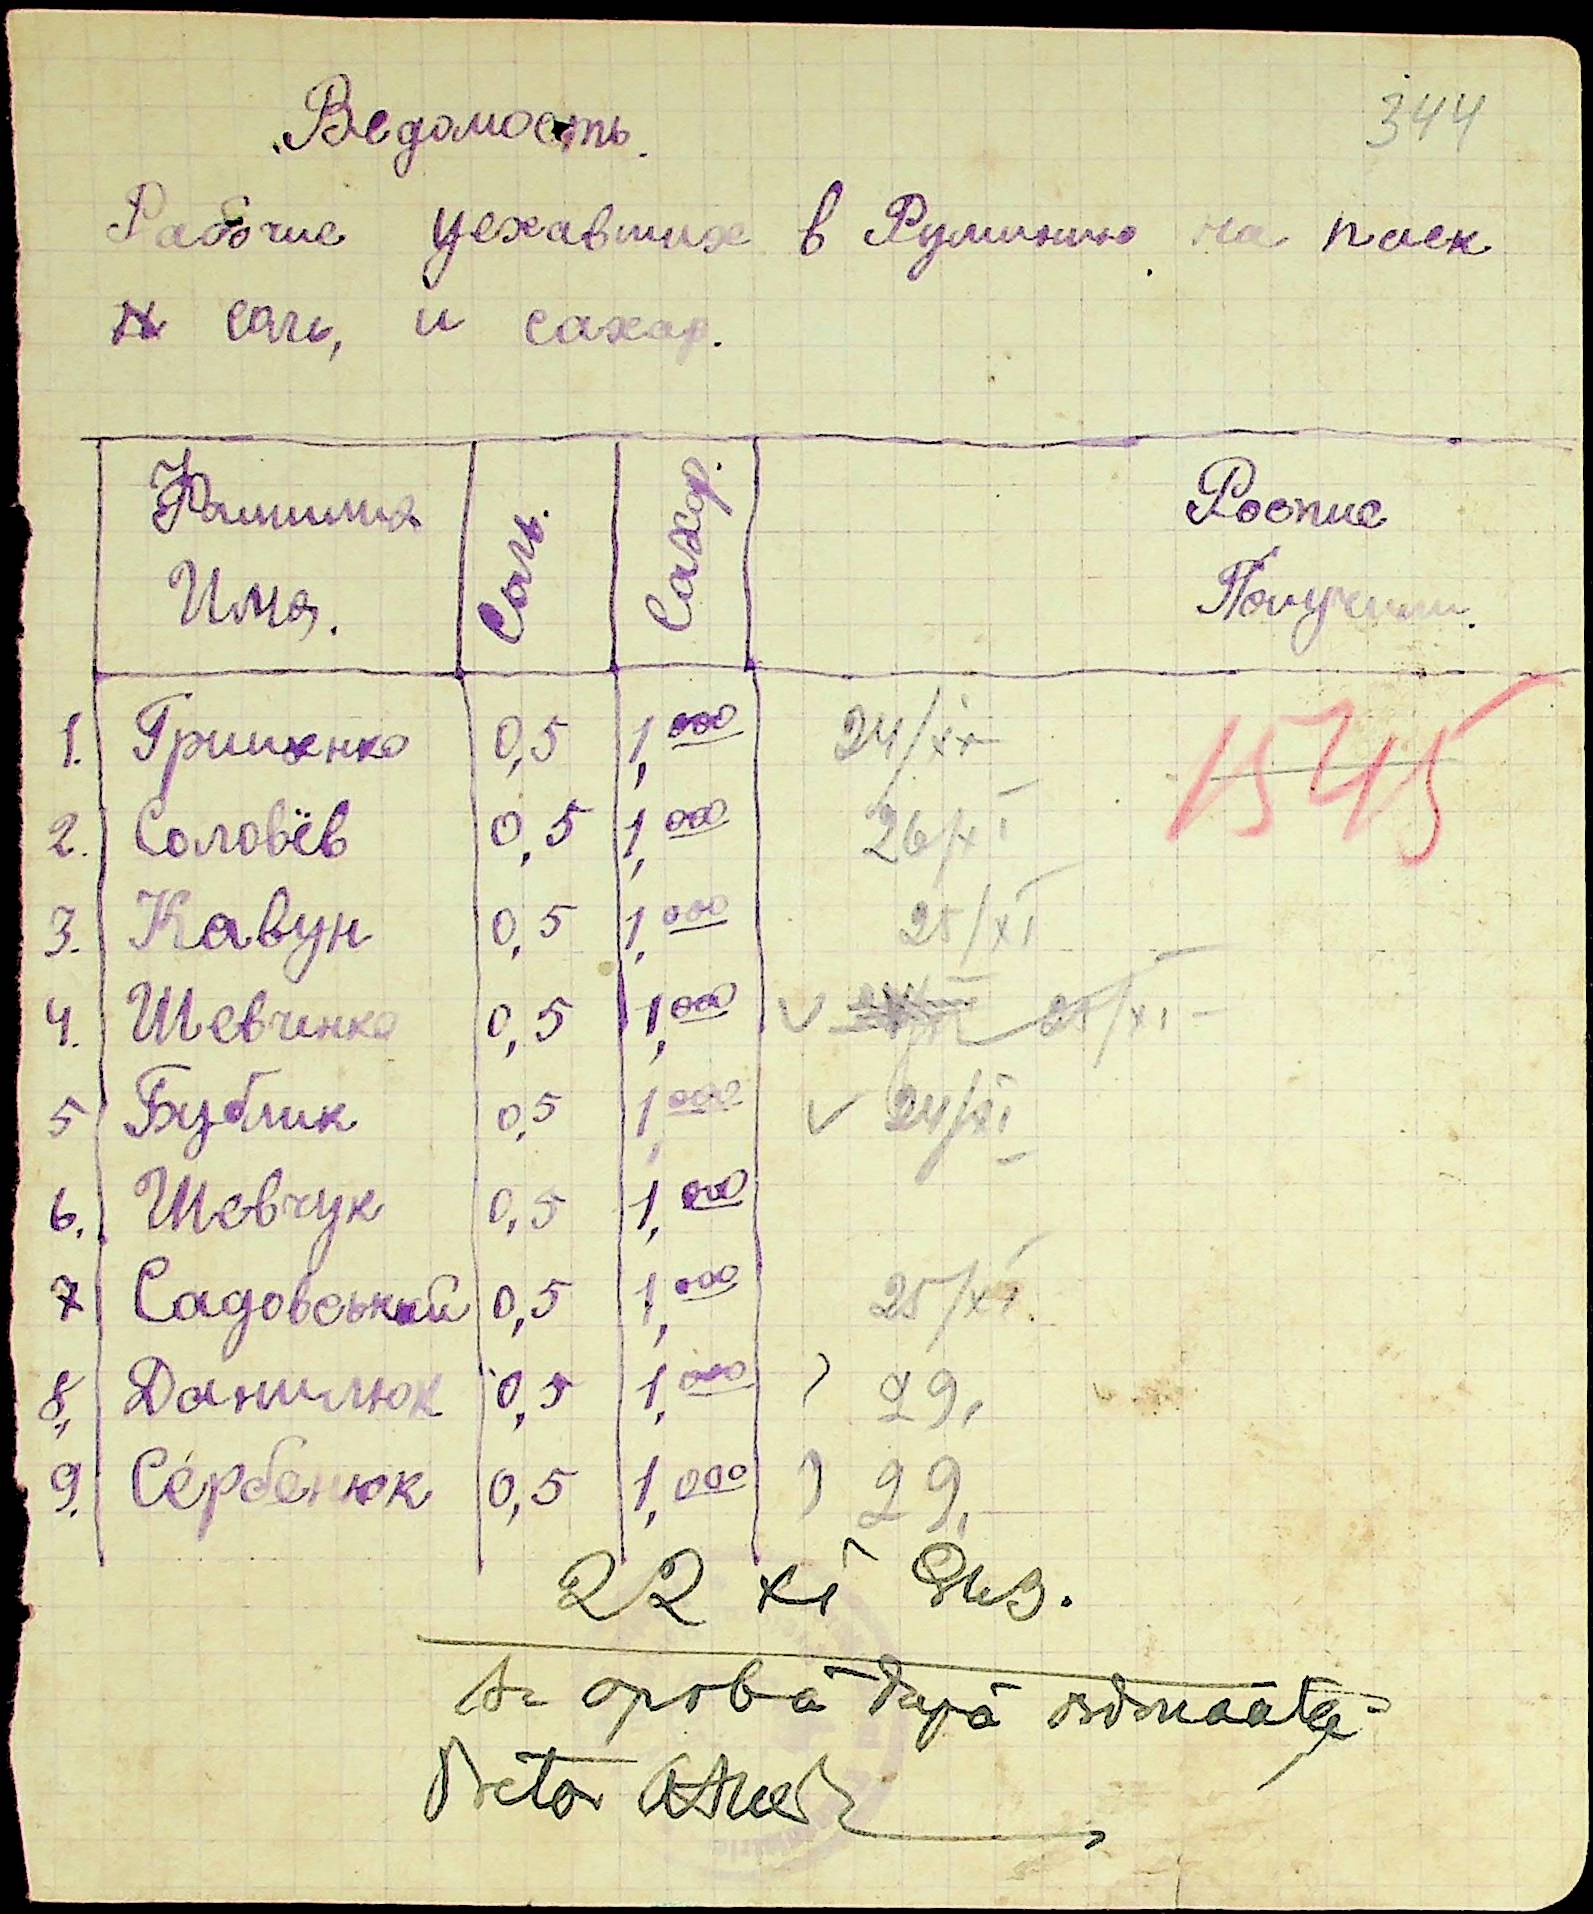 344
Ведомость.
Рабочие уехавших в Румынию на паек
соль, и сахар.
Фамилия Имя. Соль. Сахар. Роспис Получили.
1. Грищенко 0,5 1,000 24/XI
1545
2. Соловёв 0,5 1,000 26/XI
3. Кавун 0,5 1,000 25/XI
4. Шевчинко 0,5 1,000 25/XI
5 Бублик 0,5 1,000 24/XI
6. Шевчук 0,5 1,000
7 Садовський 0,5 1,000 25/XI
8. Данилюк 0,5 1,000 29,
9. Сербенюк 0,5 1,000 29,
22 XI
Se aprobă după
Pretor